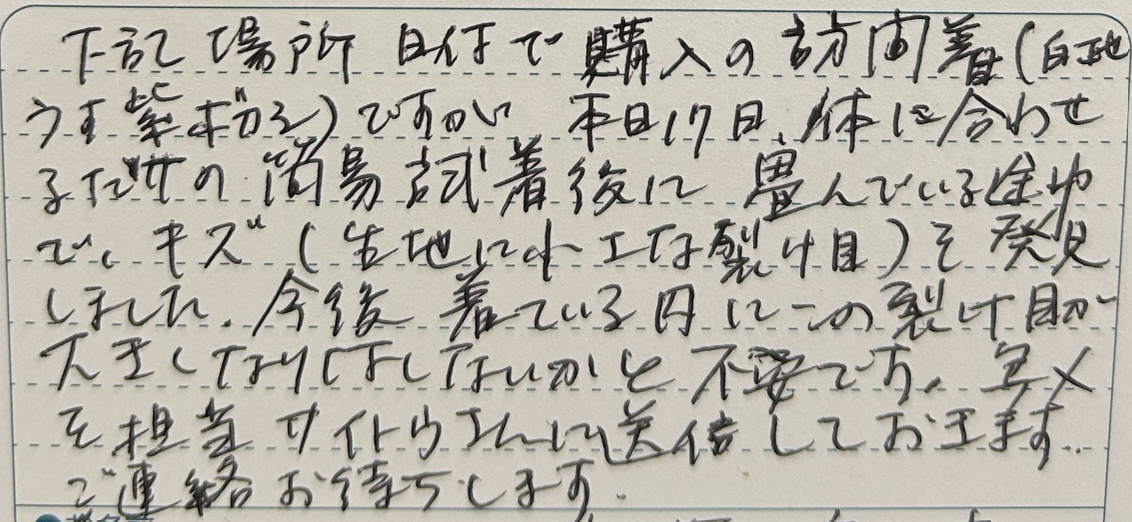 下記場所 日付で購入の訪問着(白地
うす紫ボカシ)ですが 本日17日、体に合わせ
るだけの簡易試着後に畳んでいる途中
で、キズ(生地に小さな裂け目)を発見
しました。今後着ている内にこの裂け目が
大きくなりはしないかと不安です。
を担当サイトウさんに送信しておきます。
ご連絡お待ちします。